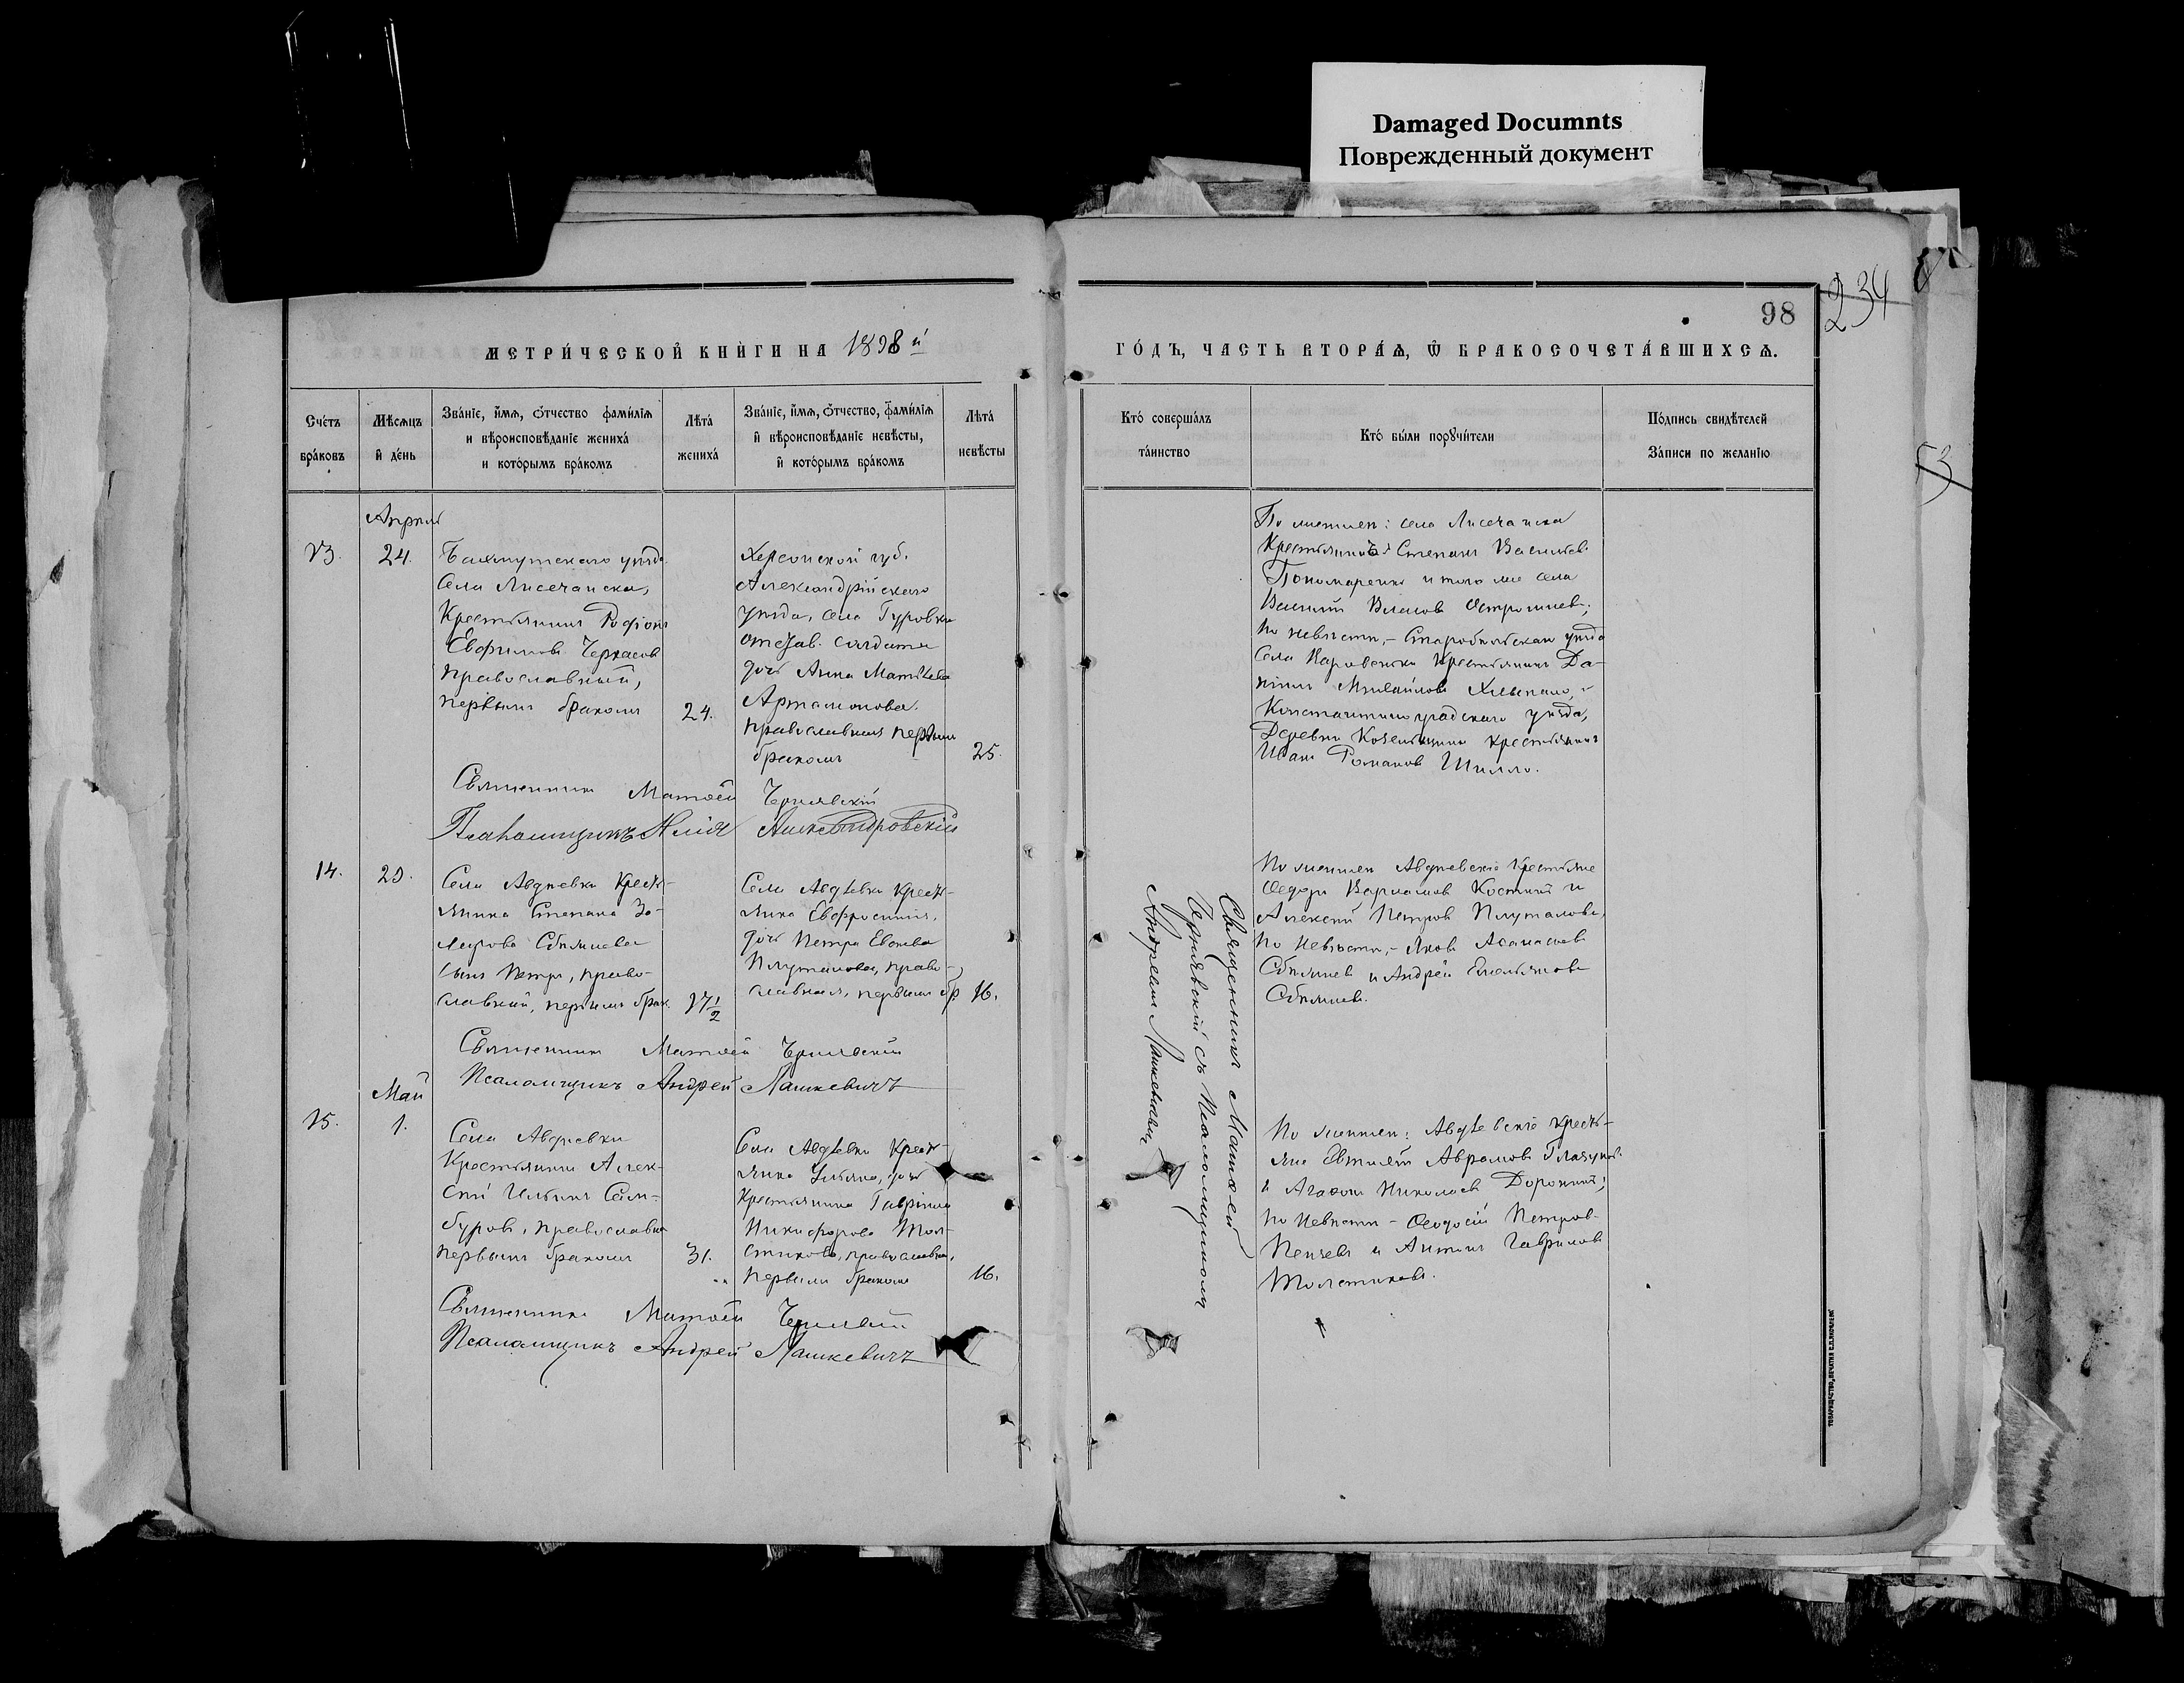 Damaged Documnts
Поврежденный документ
98
234
53
МЕТРИ́ЧЕСКОЙ КНИ́ГИ НА 1898й
ГО́ДЪ, ЧАСТЬ ВТОРА́Ѧ, Ѿ БРАКОСОЧЕТА́ВШИХСѦ.
Сче́тъ
бра́ковъ
Мѣ́сѧцъ
и҆ де́нь
Зва́нїе, и҆́мѧ, ѻ҆́тчество фами́лїѧ
и вѣроисповѣ́данїе жениха́
и кото́рымъ бра́комъ
Лѣта́
жениха́
Зва́нїе, и҆́мѧ, ѻ҆́тчество, фами́лїѧ
и҆ вѣроисповѣ́данїе невѣ́сты,
и҆ кото́рымъ бра́комъ
Лѣта́
невѣ́сты
Кто́ соверша́лъ
та́инство
Кто́ бы́ли порꙋчи́тели
По́дпись свидѣ́телей
За́писи по жела́нїю
Апрѣль
13.
24.
Бахмутскаго уѣзда
Села Лисечанска,
Крестьянинъ Родіонъ
Евфимовъ Черкасов
православный,
первымъ бракомъ
24.
Херсонской губ.
Александрійскаго
уѣзда, села Гуровки
отстав. солдата
дочь Анна Матвѣева
Артамонова.
православная первым
бракомъ
25.
По женихѣ: села Лисечанска
Крестьянинъ Степанъ Васильев
Пономаренко и того же села
Василій Власов
По невѣстѣ, - Старобѣльскаго уѣзда
Села Крестьянинъ Да-
ніилъ Михайловъ
Константиноградскаго уѣзда,
Деревни крестьянинъ
Иванъ Романов Шилло.
Священникъ Матѳей Чернявскій
Псаломщикъ Илія Александровскій
14.
Села Авдѣевки Кресть-
янина Степана
сынъ Петръ, право-
славный, первымъ брак.
17 1/2
Села Авдѣевки Кресть-
янка Евфросинія,
дочь Петра
Плуталова, право-
славная, первымъ бр.
16.
По женихѣ Авдѣевскіе крестьяне
Ѳедоръ Варламов Костинъ и
Алексѣй Петров Плуталовъ,
По невѣстѣ, - Яковъ Аѳанасьев
и Андрей Емельянов
Священникъ Матѳей
Чернявскій съ Псаломщикомъ
Андреемъ Лашкевичемъ
Священникъ Матѳей Чернявскій
Псаломщикъ Андрей Лашкевичъ
Май
15.
1.
Села Авдѣевки
Крестьянинъ Алек-
сѣй Ильинъ Сам-
буровъ, православн.
первымъ бракомъ
31.
Села Авдѣевки Кресть-
янка Ульяна, дочь
Крестьянина Гавріила
Никифорова Тол-
стикова, православная,
первымъ бракомъ
16.
По женихѣ: Авдѣевскіе кресть-
яне Авраамовъ Глазунов
и Агаѳонъ Николаев Доронинъ;
По невѣстѣ - Ѳеодосій Петров
и Антонъ Гаврилов
Толстиковъ.
Священникъ Матѳей Чернявскій
Псаломщикъ Андрей Лашкевичъ